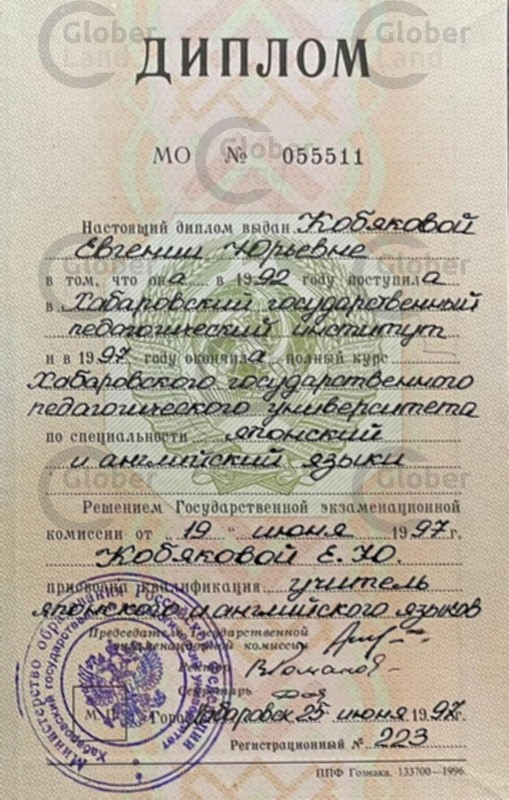 Glober Land
Glober Land
ДИПЛОМ
МО № 055511
Glober Land
Настоящий диплом выдан Кобяковой
Евгении Юрьевне
в том, что она в 1992 году поступила
в Хабаровский государственный
педагогический институт
и в 1997 году окончила полный курс
Хабаровского государственного
педагогического университета
по специальности японский
и английский языки
Glober Land
Glober Land
Решением Государственной экзаменационной
комиссии от „ 19 “ июня 1997 г.
Кобяковой Е. Ю.
присвоена квалификация учитель
японского и английского языков
Председатель Государственной
экзаменационной комиссии
Ректор
Секретарь
М. П. Город Хабаровск 25 июня 1997 г.
Регистрационный № 223
Министерство образования
Хабаровский государственный педагогический университет
ППФ Гознака. 133700—1996.